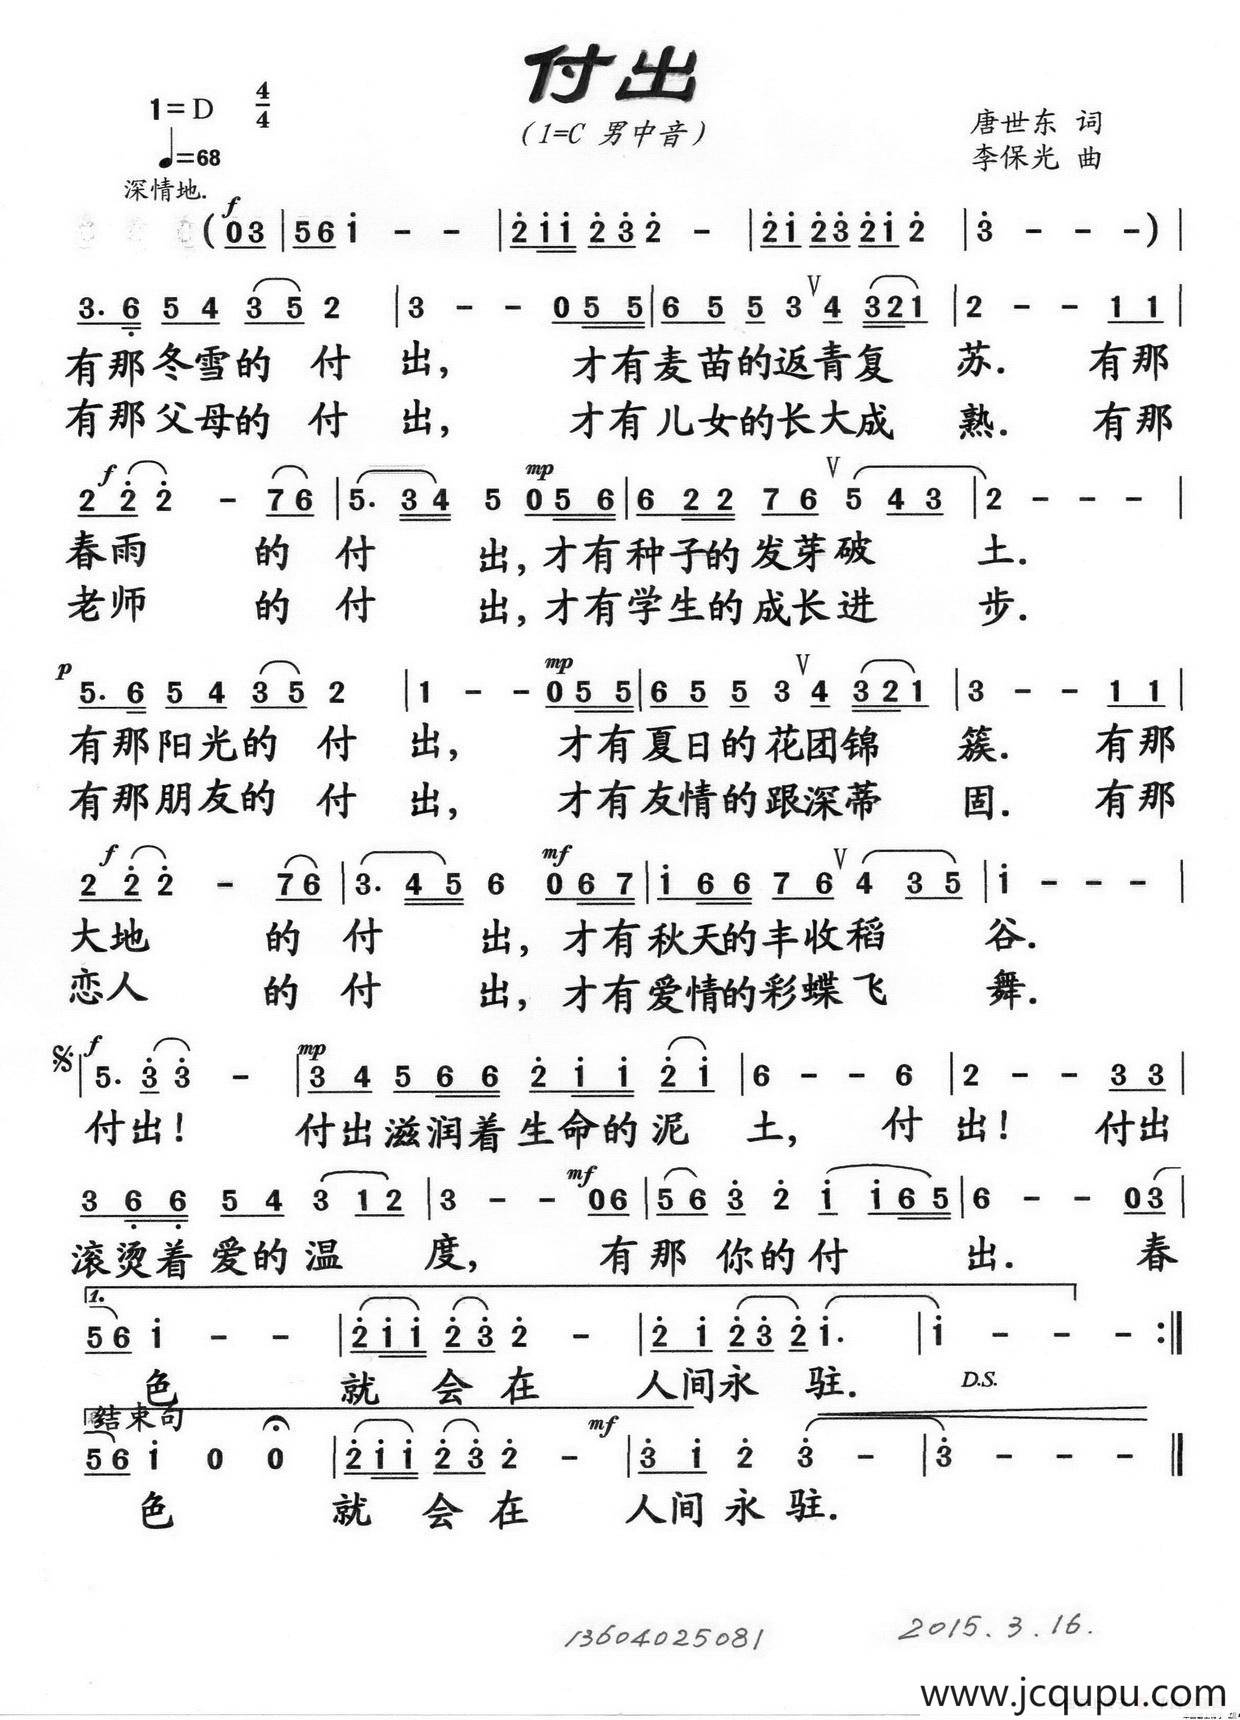 付出
1=D 4/4
(1=C 男中音)
唐世东 词
♩=68
李保光 曲
深情地.
f
(03 | 56i - - | 2ii 232 - | 2i232i2 | 3 - - -) |
3. 6 54 35 2 | 3 - - 055 | 65 5 3 V 4 321 | 2 - - 11 |
有那冬雪的 付 出, 才有麦苗的返青复 苏. 有那
有那父母的 付 出, 才有儿女的长大成 熟. 有那
f mp V
2 2 2 - 76 | 5. 34 5 056 | 6 22 76 5 43 | 2 - - - |
春雨 的 付 出,才有种子的发芽破 土.
老师 的 付 出,才有学生的成长进 步.
p mp V
5. 6 54 35 2 | 1 - - 055 | 65 5 3 4 321 | 3 - - 11 |
有那阳光的 付 出, 才有夏日的花团锦 簇. 有那
有那朋友的 付 出, 才有友情的跟深蒂 固. 有那
f mf V
2 2 2 - 76 | 3. 45 6 067 | i 66 76 4 35 | i - - - |
大地 的 付 出,才有秋天的丰收稻 谷.
恋人 的 付 出,才有爱情的彩蝶飞 舞.
f mp
5. 3 3 - | 34 566 2ii 2i | 6 - - 6 | 2 - - 33 |
付出! 付出滋润着生命的泥 土, 付 出! 付出
mf
366 54 3 12 | 3 - - 06 | 56 3 2 i i65 | 6 - - 03 |
滚烫着 爱的 温 度, 有那 你的付 出. 春
1.
56 i - - | 2ii 23 2 - | 2 i 232 i. | i - - - :||
色 就 会 在 人间永 驻. D.S.
结束句 mf
56 i 0 0 | 2ii 23 2 - | 3 i 2 3 - | 3 - - - ||
色 就 会 在 人间永 驻.
13604025081 2015.3.16.
www.jcqupu.com